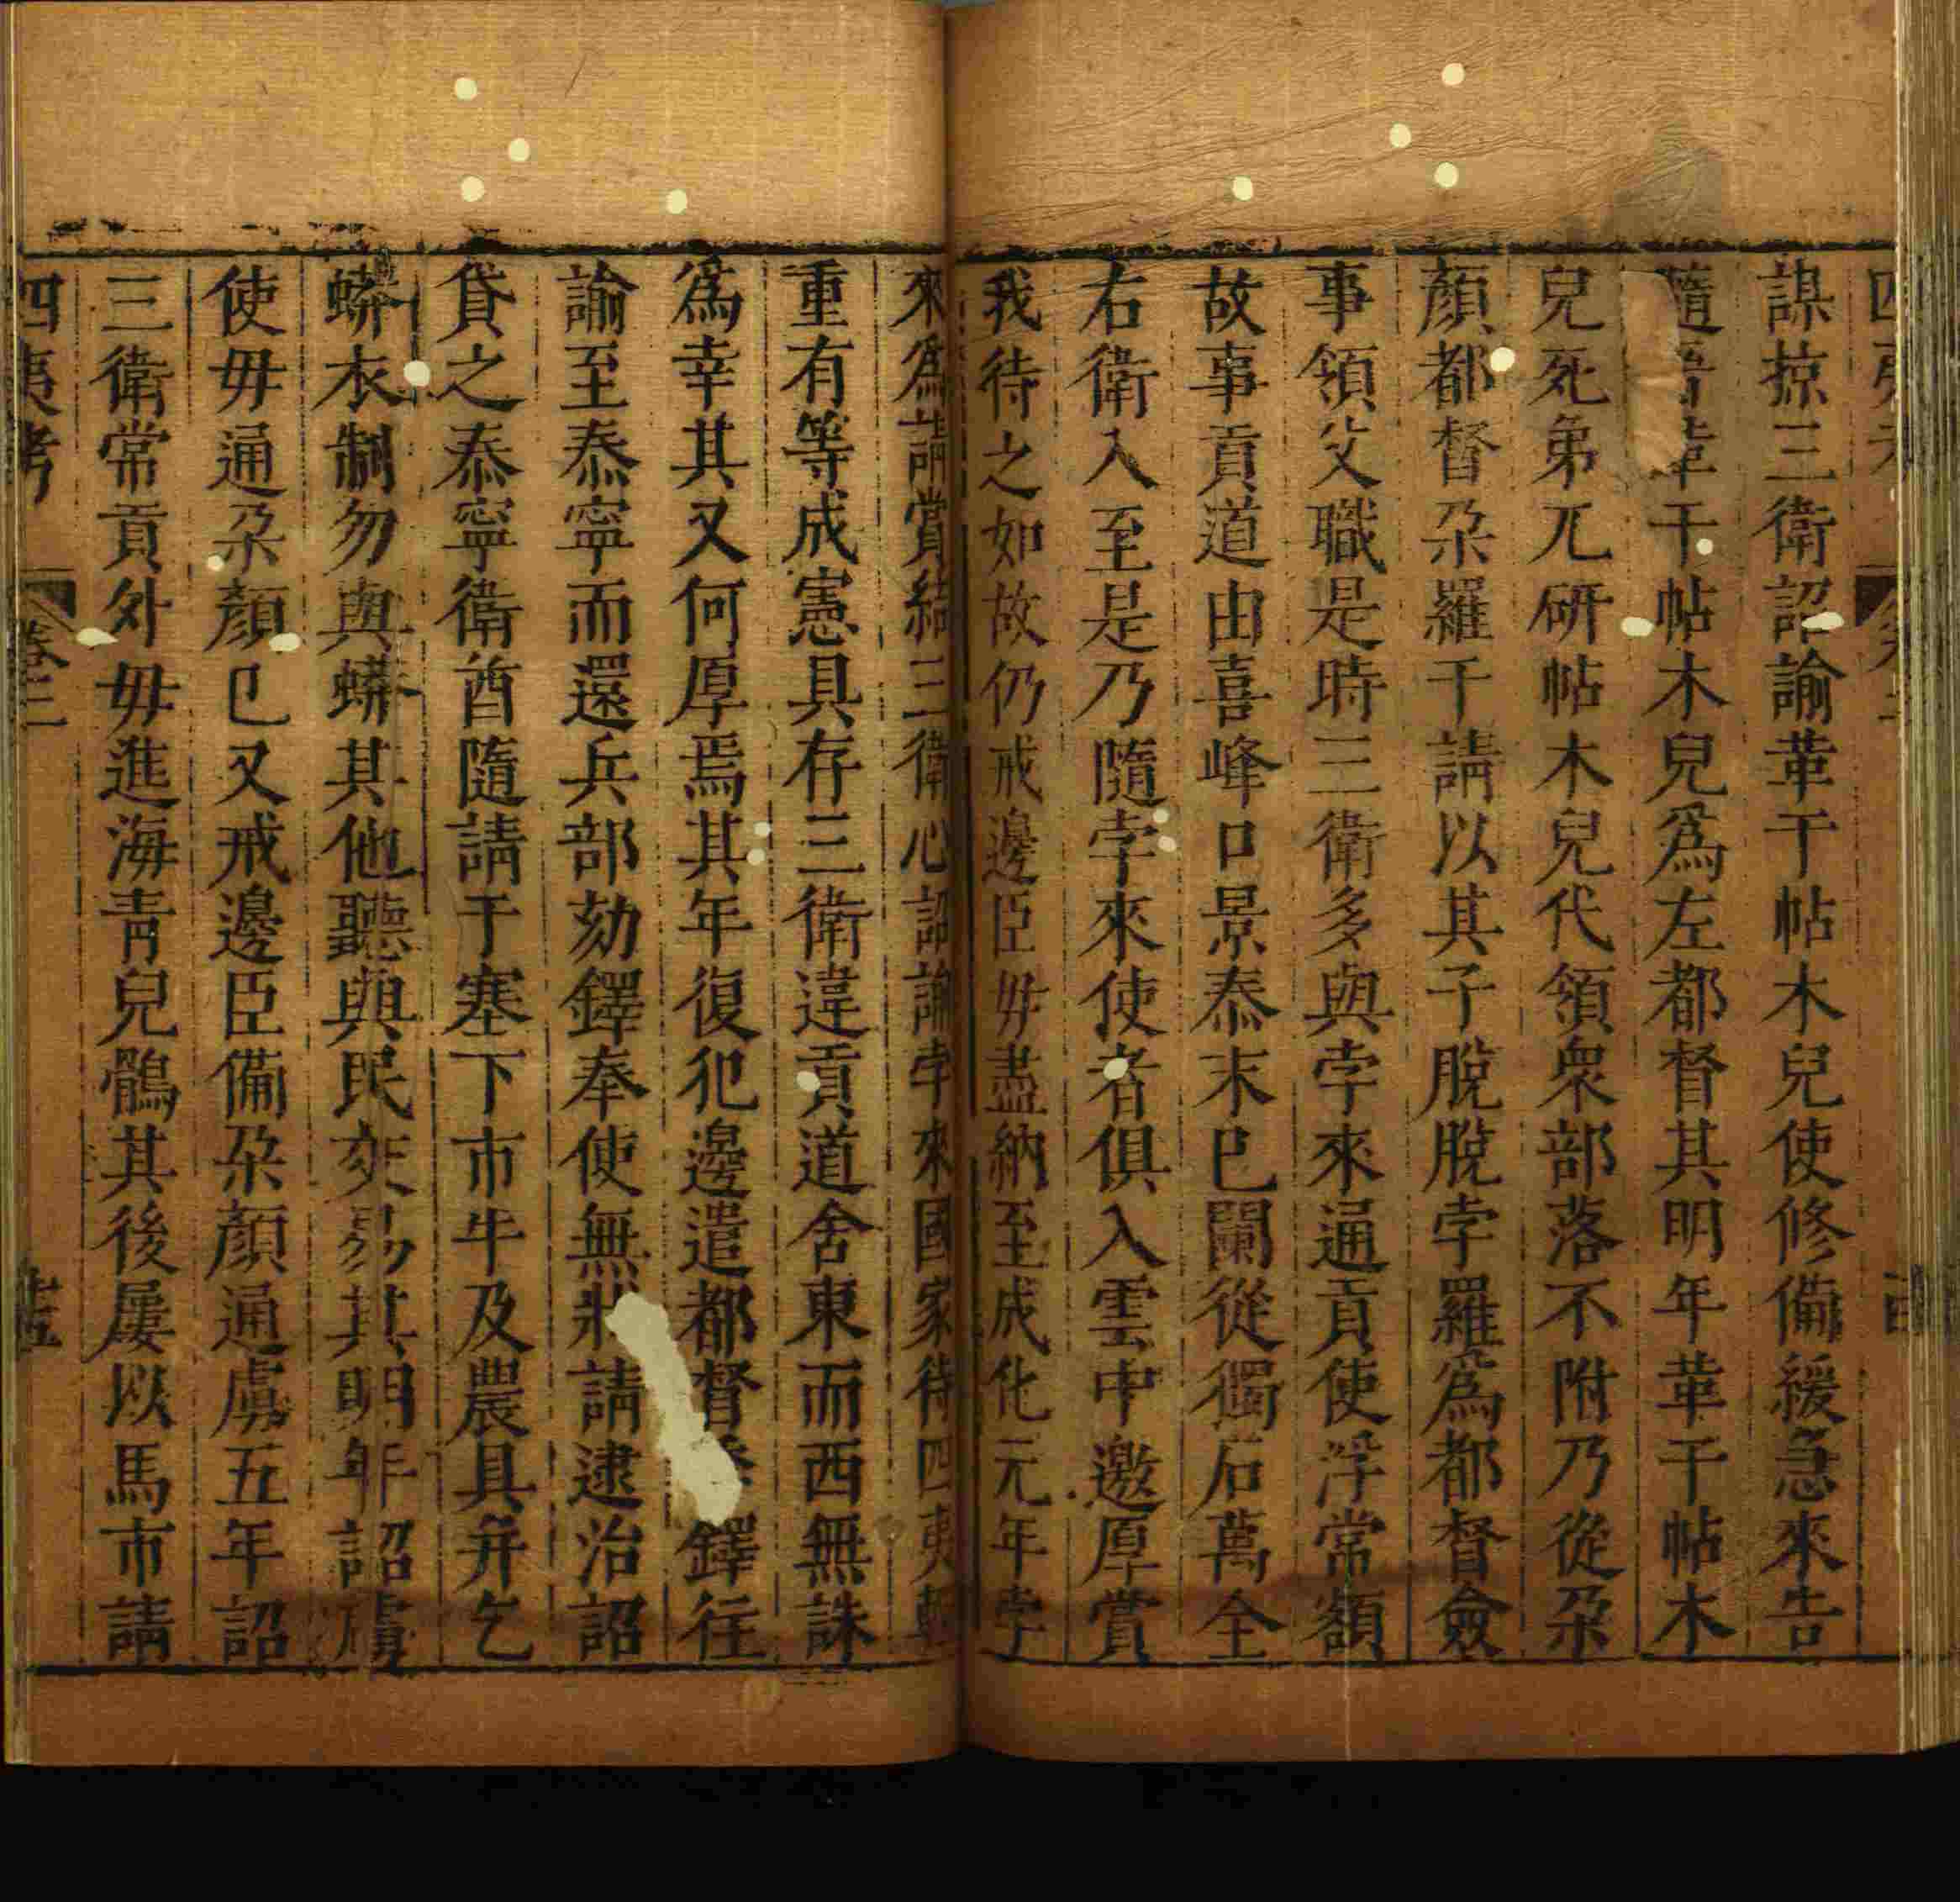 謀掠三衛詔諭革干帖木兒使修備緩急來告
隨革干帖木兒爲左都督其明年革干帖木
兒死弟兀研帖木兒代領衆部落不附乃從朶
顏都督朶羅干請以其子脫脫孛羅爲都督僉
事領父職是時三衛多與孛來通貢使浮常額
故事貢道由喜峰口景泰末巳闌從獨石萬全
右衛入至是乃隨孛來使者俱入雲中邀厚賞
我待之如故仍戒邊臣毋盡納至成化元年孛
來爲請賞結三衛心詔諭孛來國家待四夷輕
重有等成憲具存三衛違貢道舍東而西無誅
爲幸其又何厚焉其年復犯邊遣都督鐸往
諭至泰寧而還兵部劾鐸奉使無狀請逮治詔
貸之泰寧衛酋隨請于塞下市牛及農具并乞
蟒衣制勿與蟒其他聽與民交易其明年詔虜
使毋通朶顏巳又戒邊臣備朶顏通虜五年詔
三衛常貢外毋進海青兒鶻其後屢以馬市請
四夷考 卷三